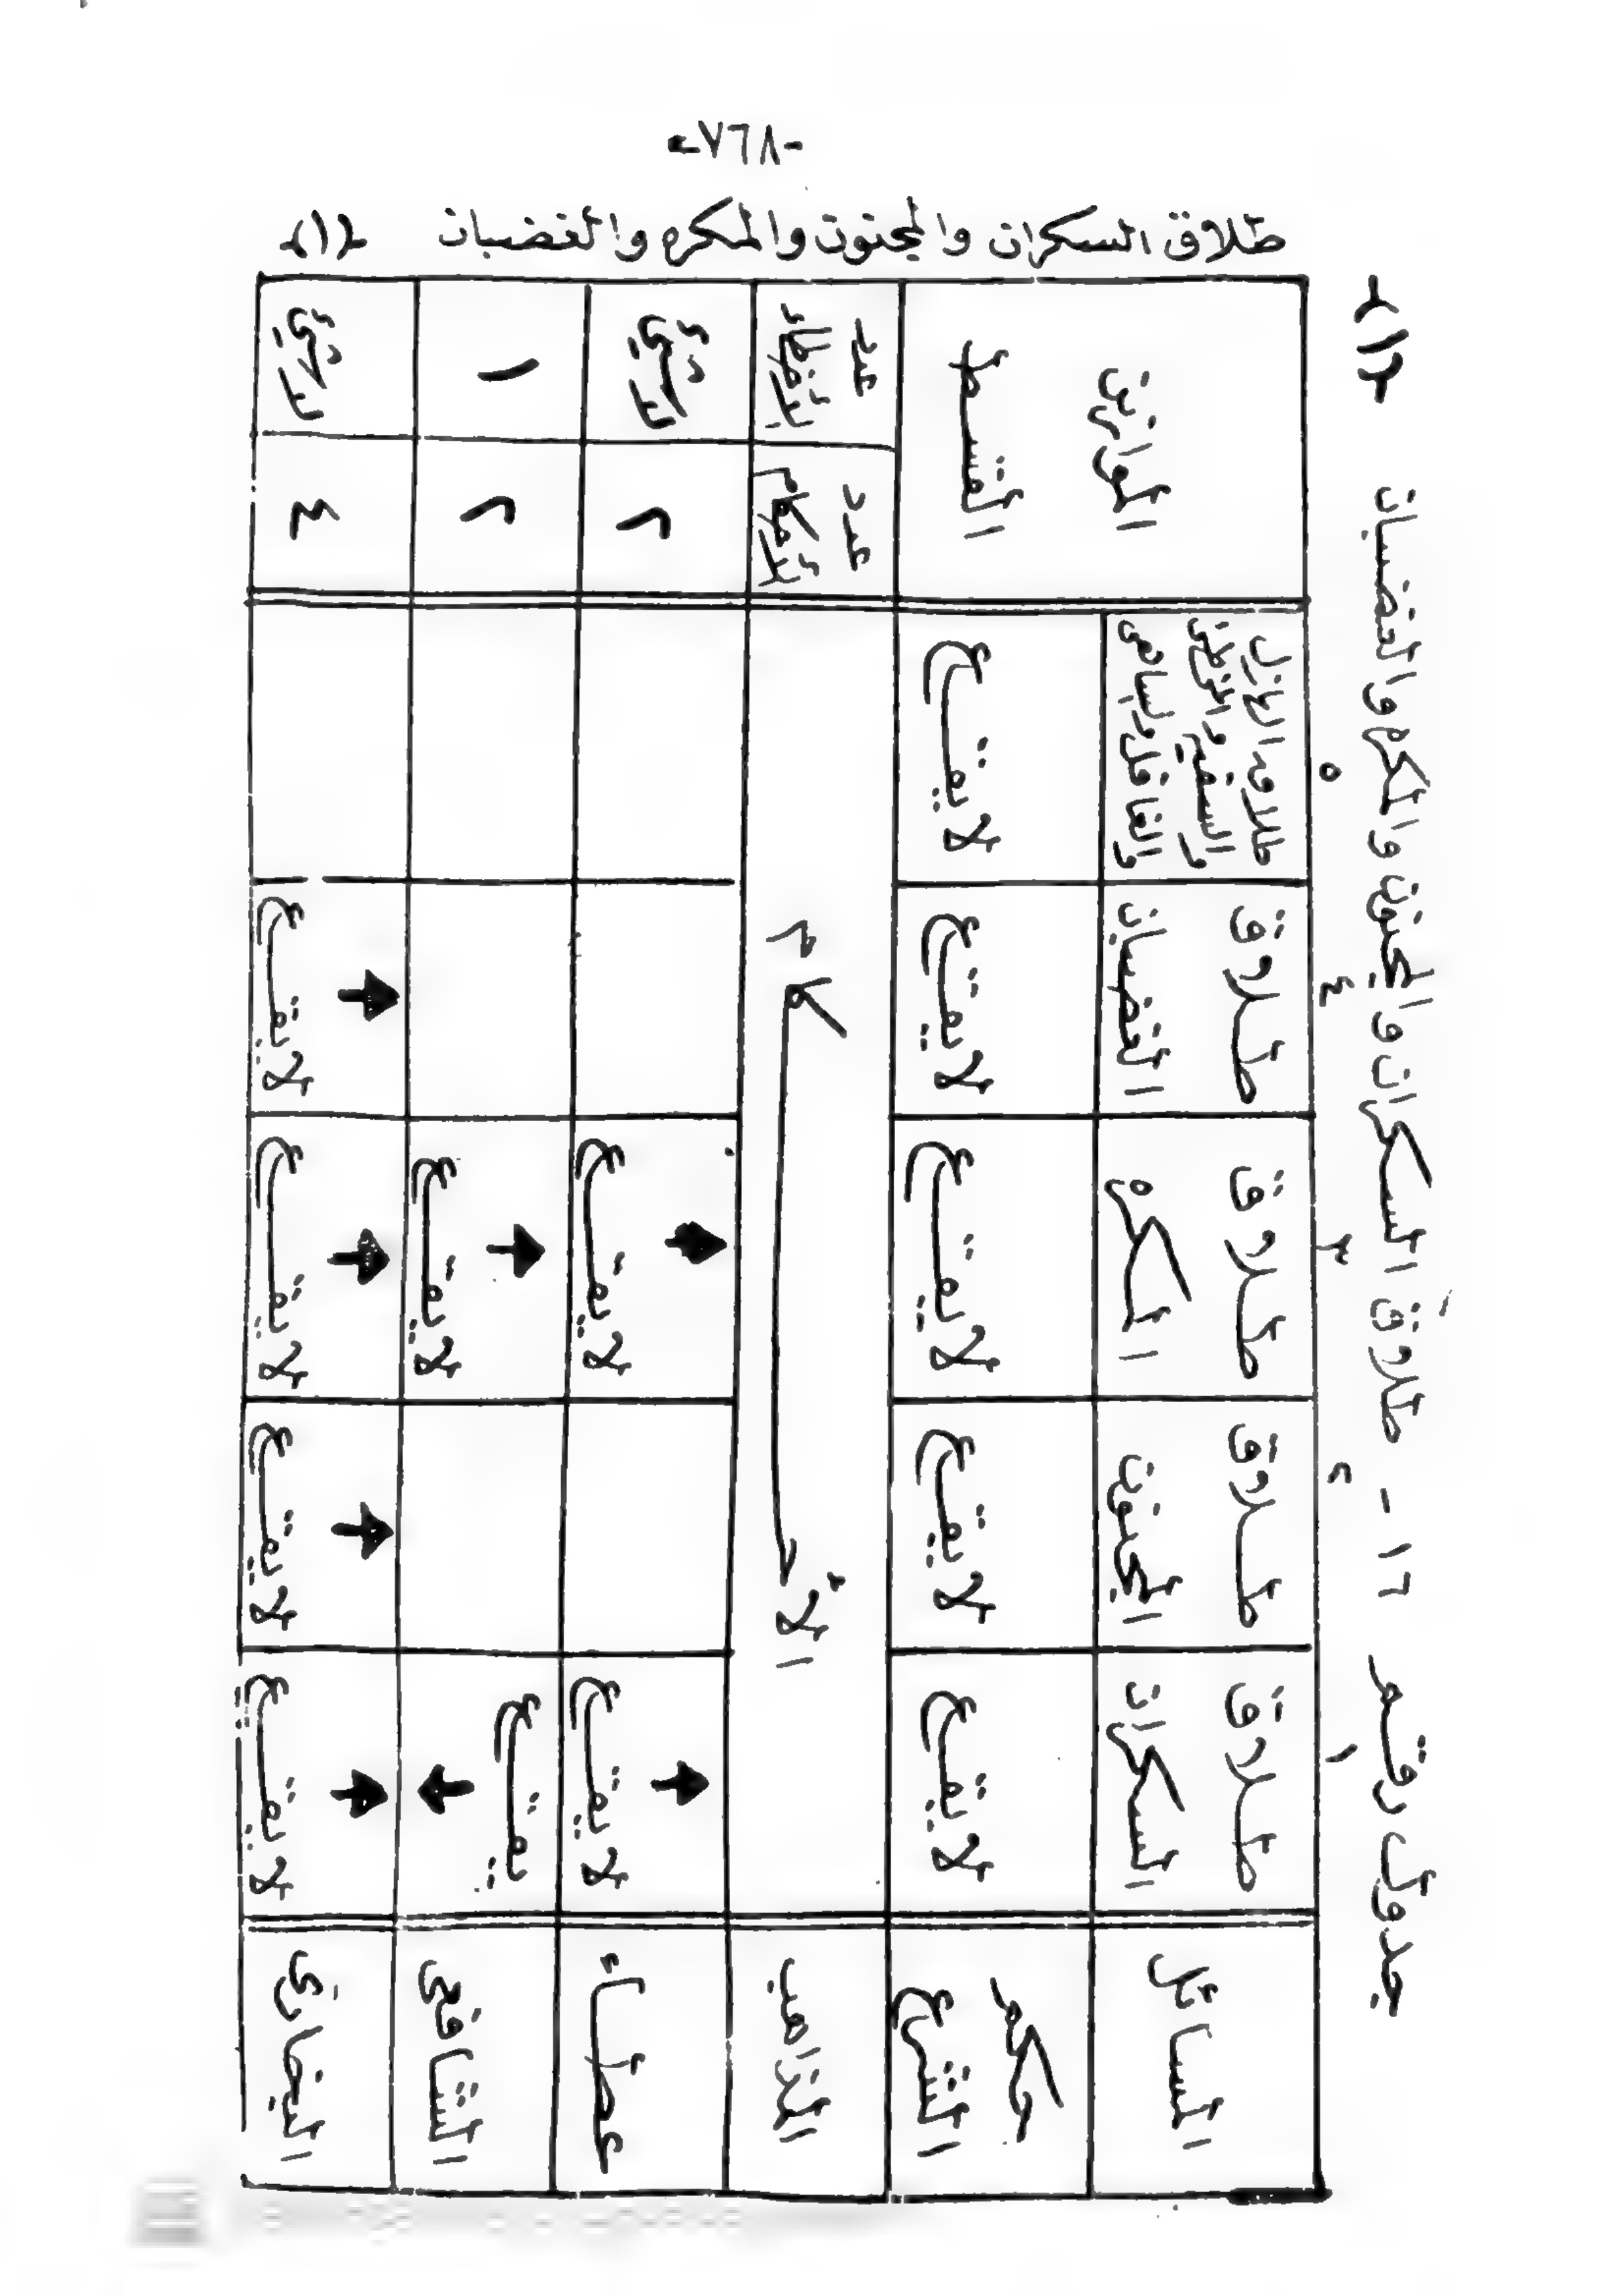 -٧٦٨-
طلاق السكران والمجنون والمكره والغضبان (١٢)
جدول رقم ١٦ - طلاق السكران والمجنون والمكره والغضبان (١٢)
١ ٢ ٣ ٤ ٥
المسائل
طلاق السكران
طلاق المجنون
طلاق المكره
طلاق الغضبان
طلاق الهازل
والسفيه
والغافل والساهي
الموازين
القسط
حكم الشرع
لا يقع
لا يقع
لا يقع
لا يقع
لا يقع
المذاهب
الأحكام
عدد الأحكام
عدد الأخطاء
عطاء
لا يقع
لا يقع
٢
لا شيء
الشافعي
يقع
لا يقع
٢
١
البخاري
لا يقع
لا يقع
لا يقع
لا يقع
٤
لا شيء